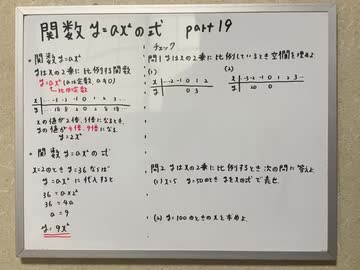 関数 y=ax²の式 part 19
・関数 y=ax²
yはxの2乗に比例する関数
y=ax² (aは定数, a≠0)
比例定数
x … -3 -2 -1 0 1 2 3 …
y … 18 8 2 0 2 8 18
xの値が2倍、3倍になるとき、
yの値が4倍、9倍になる
y=2x²
・関数 y=ax²の式
x=2のとき y=36 ならば
y=ax² に代入すると
36=a×2²
36=4a
a=9
y=9x²
・チェック
問1 yはxの2乗に比例しているとき空欄を埋めよ
(1)
x … -2 -1 0 1 2
y 0 3
(2)
x … -3 -2 -1 0 1 2 3 …
y 20 0
問2 yはxの2乗に比例するとき次の問に答えよ
(1) x=5 y=50のとき yをxの式で表せ
(2) y=100のときのxを求めよ。